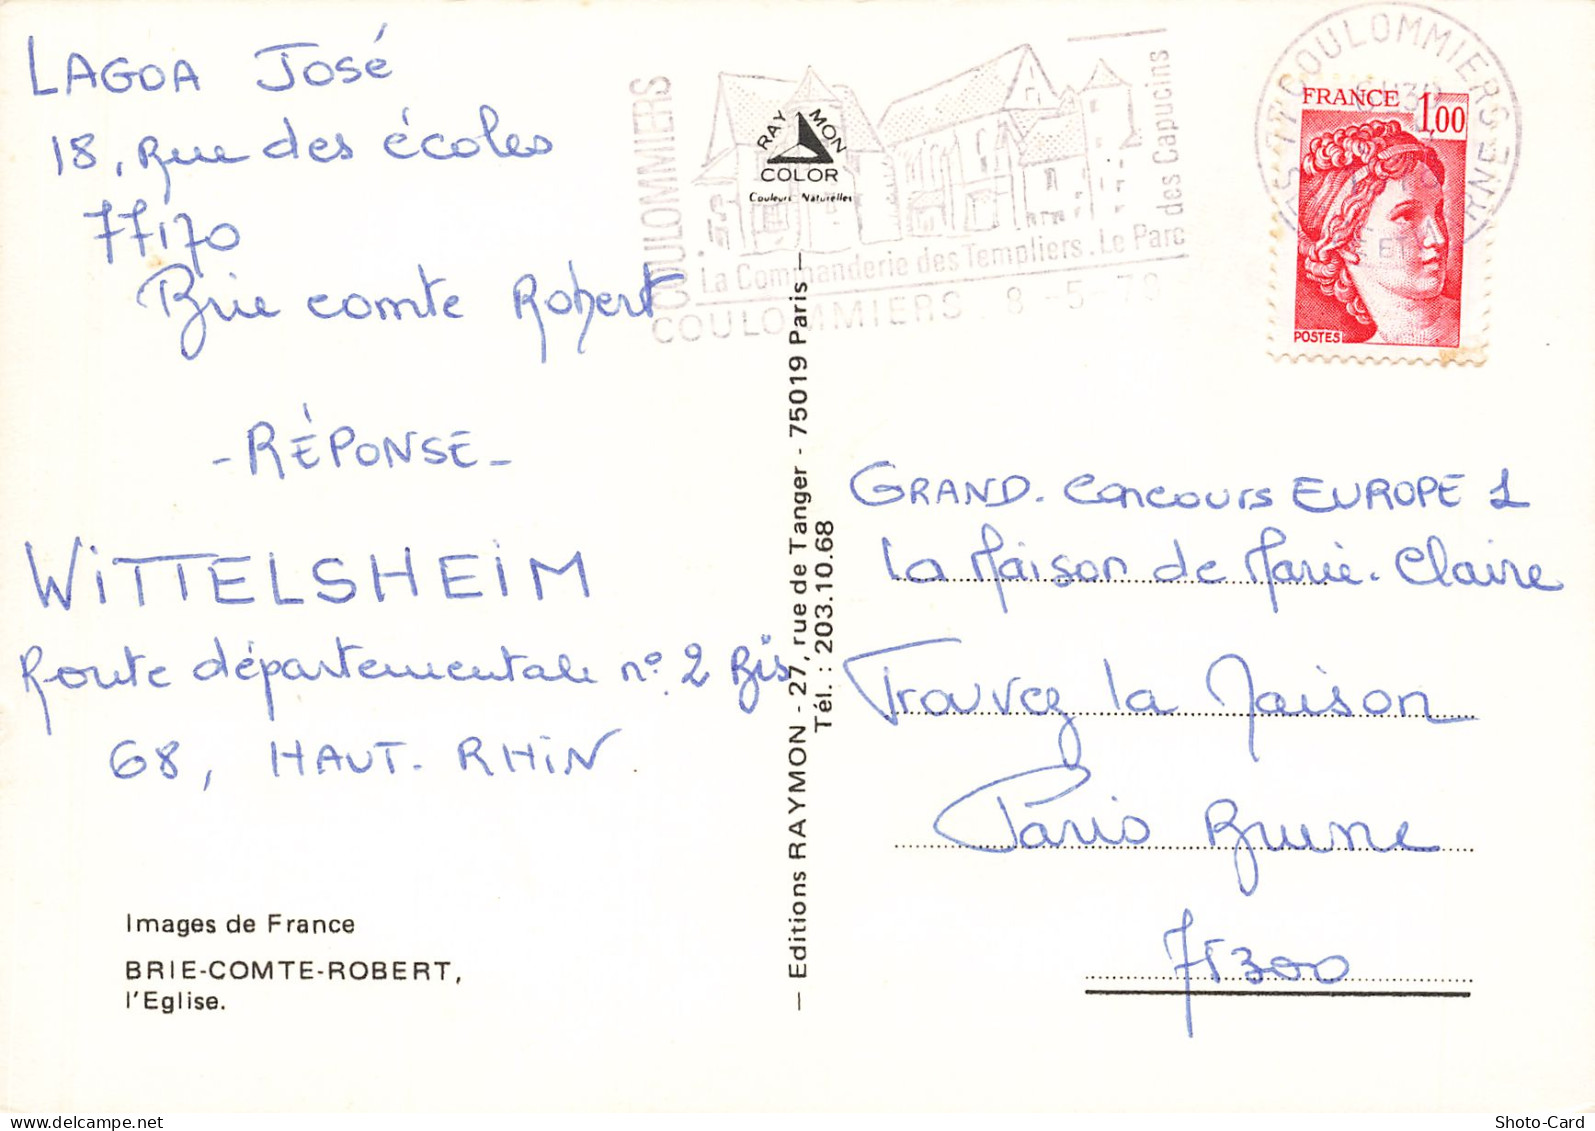 LAGOA José
18, Rue des écoles
77170
Brie comte Robert
- RÉPONSE -
WiTTELSHEiM
Route départementale n° 2 Bis
68, HAUT-RHiN
Images de France
BRIE-COMTE-ROBERT,
l'Eglise.
COULOMMIERS
La Commanderie des Templiers. Le Parc
des Capucins
COULOMMIERS. 8-5-79
RAYMON
COLOR
Couleurs Naturelles
— Editions RAYMON - 27, rue de Tanger - 75019 Paris —
Tél. : 203.10.68
77 COULOMMIERS
FRANCE 1,00
POSTES
GRAND. Concours EUROPE 1
La Maison de Marie-Claire
Trouvez la Maison
Paris Brune
75300
Shoto-Card